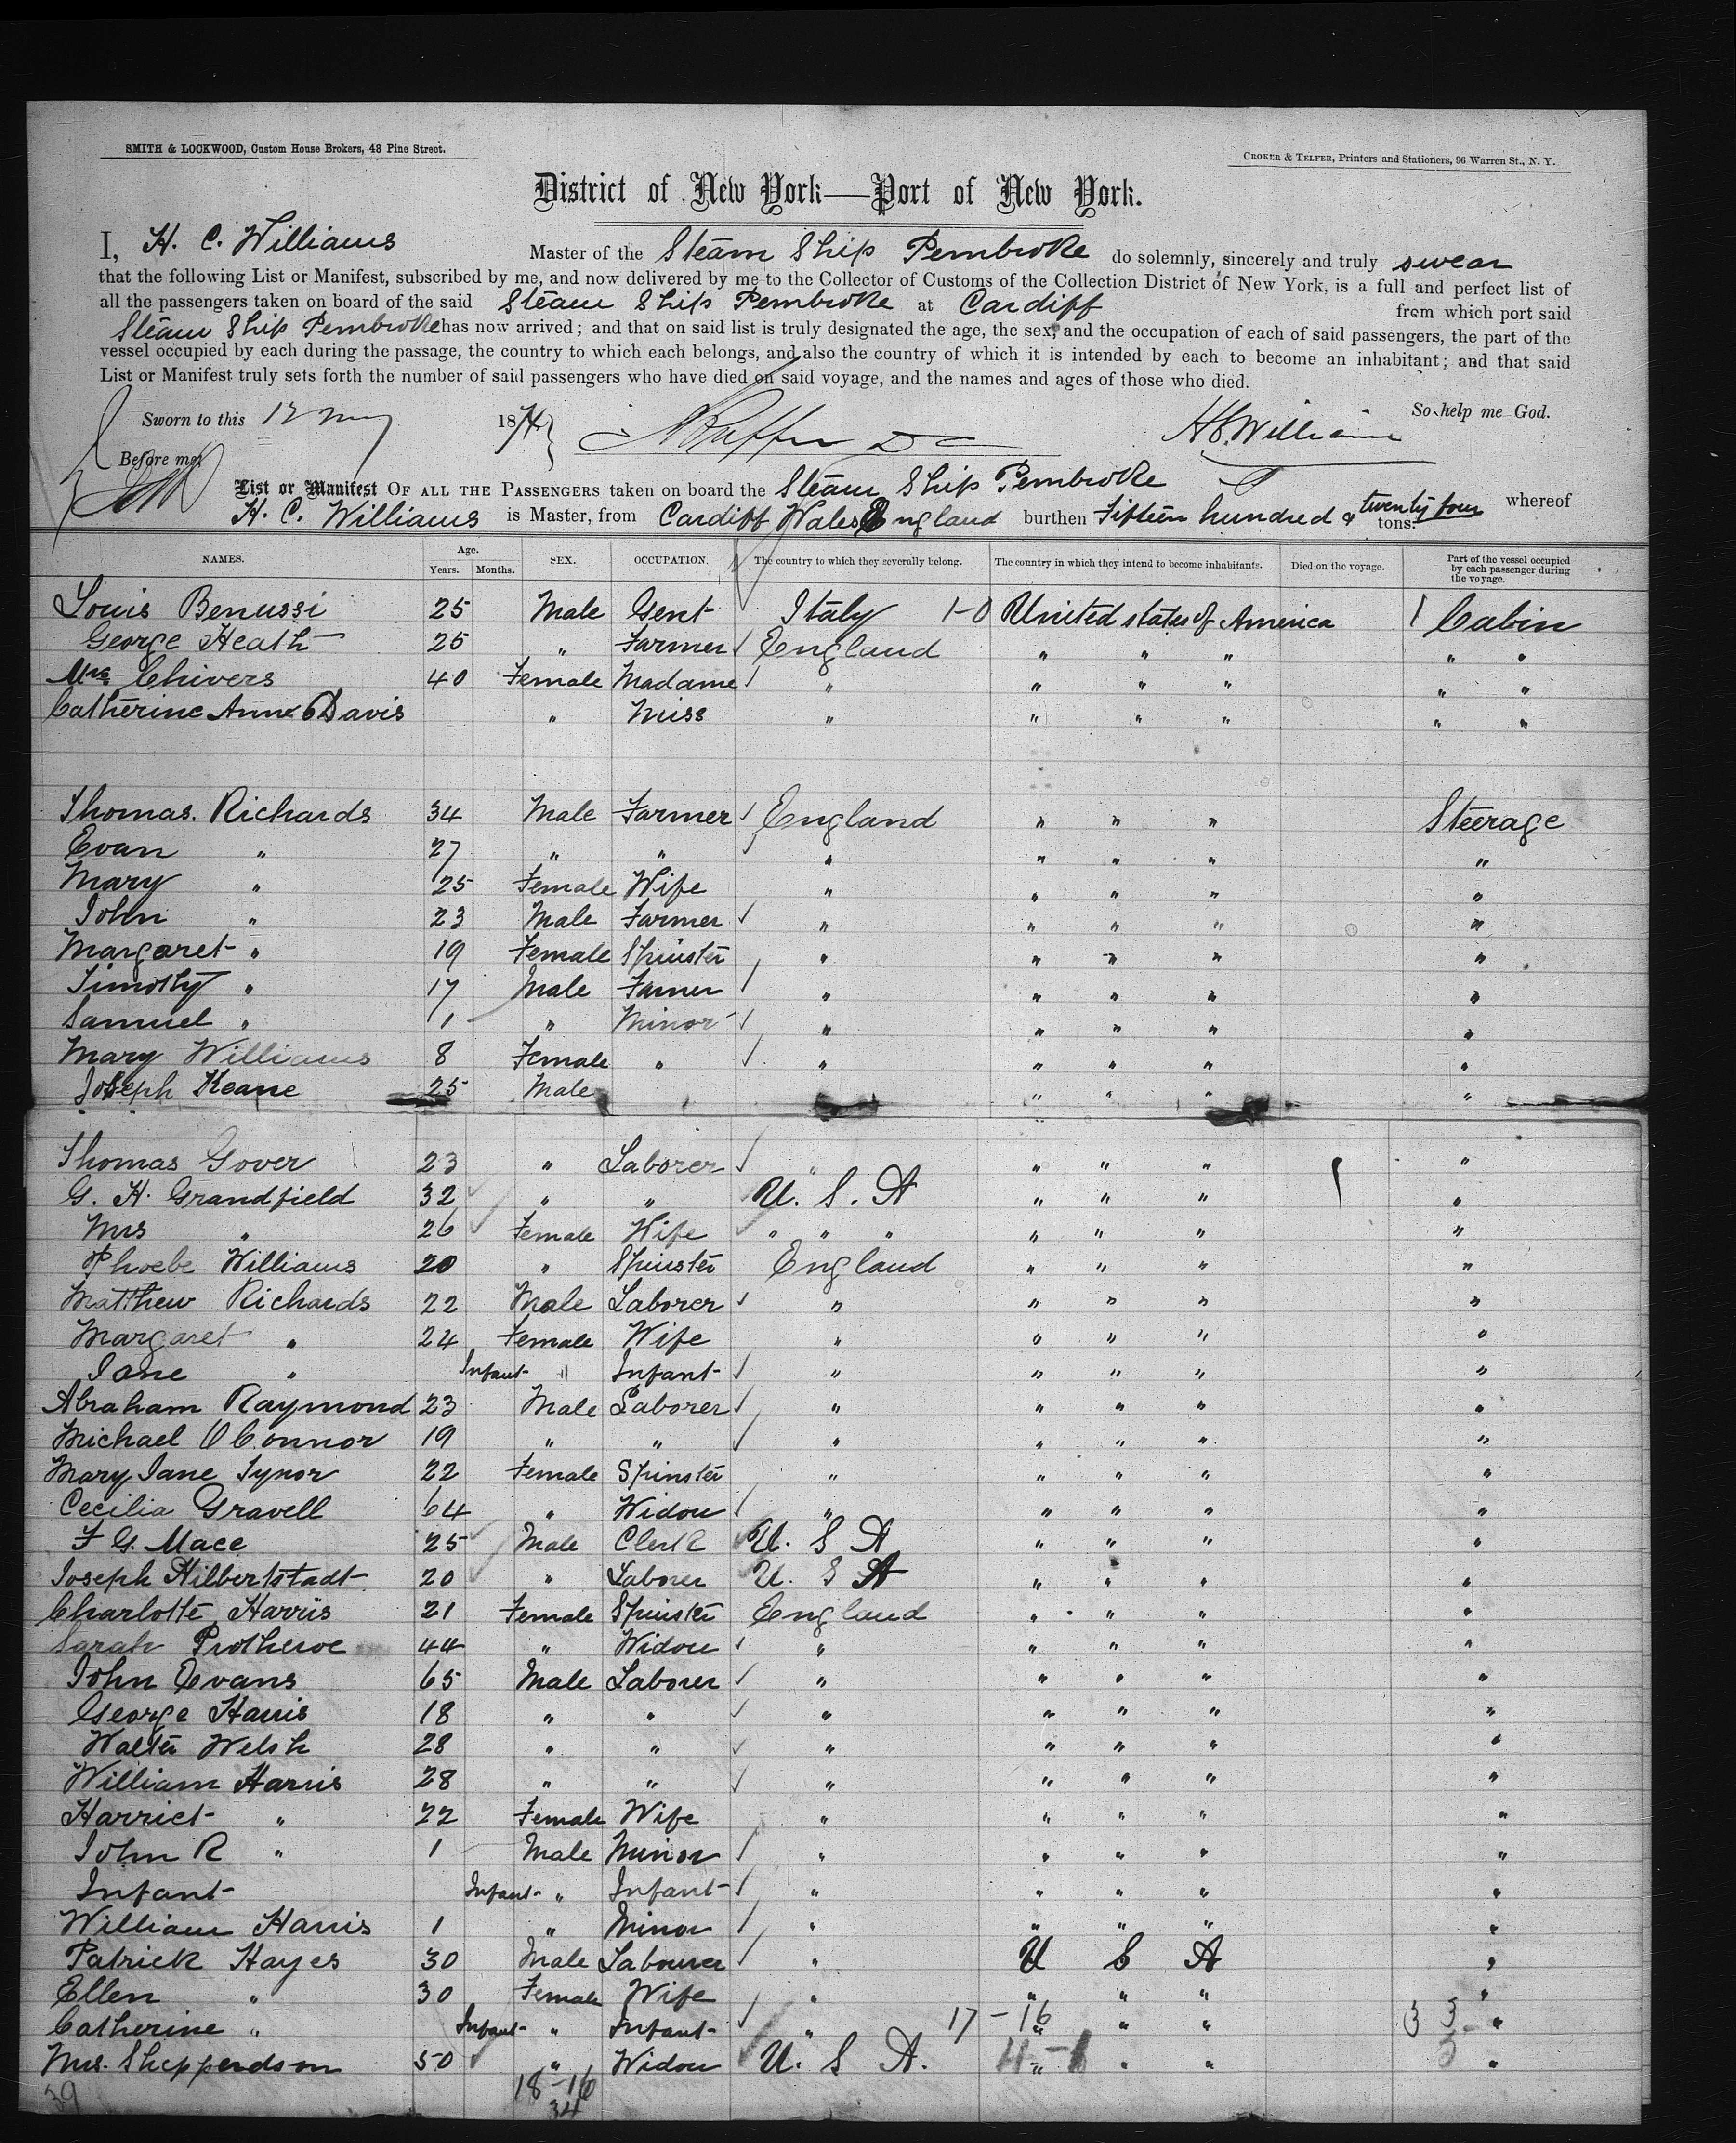 SMITH & LOCKWOOD, Custom House Brokers, 48 Pine Street.
CROKER & TELFER, Printers and Stationers, 96 Warren St., N. Y.
District of New York—Port of New York.
I, H. C. Williams Master of the Steam Ship Pembroke do solemnly, sincerely and truly swear
that the following List or Manifest, subscribed by me, and now delivered by me to the Collector of Customs of the Collection District of New York, is a full and perfect list of
all the passengers taken on board of the said Steam Ship Pembroke at Cardiff from which port said
Steam Ship Pembroke has now arrived; and that on said list is truly designated the age, the sex, and the occupation of each of said passengers, the part of the
vessel occupied by each during the passage, the country to which each belongs, and also the country of which it is intended by each to become an inhabitant; and that said
List or Manifest truly sets forth the number of said passengers who have died on said voyage, and the names and ages of those who died.
Sworn to this 12 187 So help me God.
H C Williams
Before me,
List or Manifest OF ALL THE PASSENGERS taken on board the Steam Ship Pembroke whereof
H. C. Williams is Master, from Cardiff Wales England burthen Fifteen hundred & twenty four tons.
NAMES. Age. Years. Months. SEX. OCCUPATION. The country to which they severally belong. The country in which they intend to become inhabitants. Died on the voyage. Part of the vessel occupied by each passenger during the voyage.
Louis Benussi 25 Male Gent Italy 1-0 United states of America 1 Cabin
George Heath 25 " Farmer England " " " " "
Mrs Chivers 40 Female Madame " " " " " "
Catherine Ann Davis " Miss " " " " " "
Thomas. Richards 34 Male Farmer England " " " Steerage
Evan " 27 " " " " " " "
Mary " 25 Female Wife " " " " "
John " 23 Male Farmer " " " " "
Margaret " 19 Female Spinster " " " " "
Timothy " 17 Male Farmer " " " " "
Samuel " 1 " Minor " " " " "
Mary Williams 8 Female " " " " " "
Joseph Keane 25 Male " " " "
Thomas Gover 23 " Laborer " " " " "
G. H. Grandfield 32 " " U. S. A " " " "
Mrs " 26 Female Wife " " " " " " "
Phoebe Williams 20 " Spinster England " " " "
Matthew Richards 22 Male Laborer " " " " "
Margaret " 24 Female Wife " " " " "
Jane " Infant " Infant " " " " "
Abraham Raymond 23 Male Laborer " " " " "
Michael O Connor 19 " " " " " " "
Mary Jane Tynor 22 Female Spinster " " " " "
Cecilia Gravell 64 " Widow " " " " "
F G. Mace 25 Male Clerk U. S A " " " "
Joseph Hilbertstadt 20 " Laborer U. S A " " " "
Charlotte Harris 21 Female Spinster England " " " "
Sarah Protheroe 44 " Widow " " " " "
John Evans 65 Male Laborer " " " " "
George Harris 18 " " " " " " "
Walter Welsh 28 " " " " " " "
William Harris 28 " " " " " " "
Harriet " 22 Female Wife " " " " "
John R " 1 Male Minor " " " " "
Infant Infant " Infant " " " " "
William Harris 1 " Minor " " " " "
Patrick Hayes 30 Male Labourer " U S A "
Ellen " 30 Female Wife " " " " "
Catherine " Infant " Infant " 17 - 16 " " " 3 3 "
Mrs. Shepperdson 50 " Widow U. S A. 4-1 " " " "
39 18-16
34